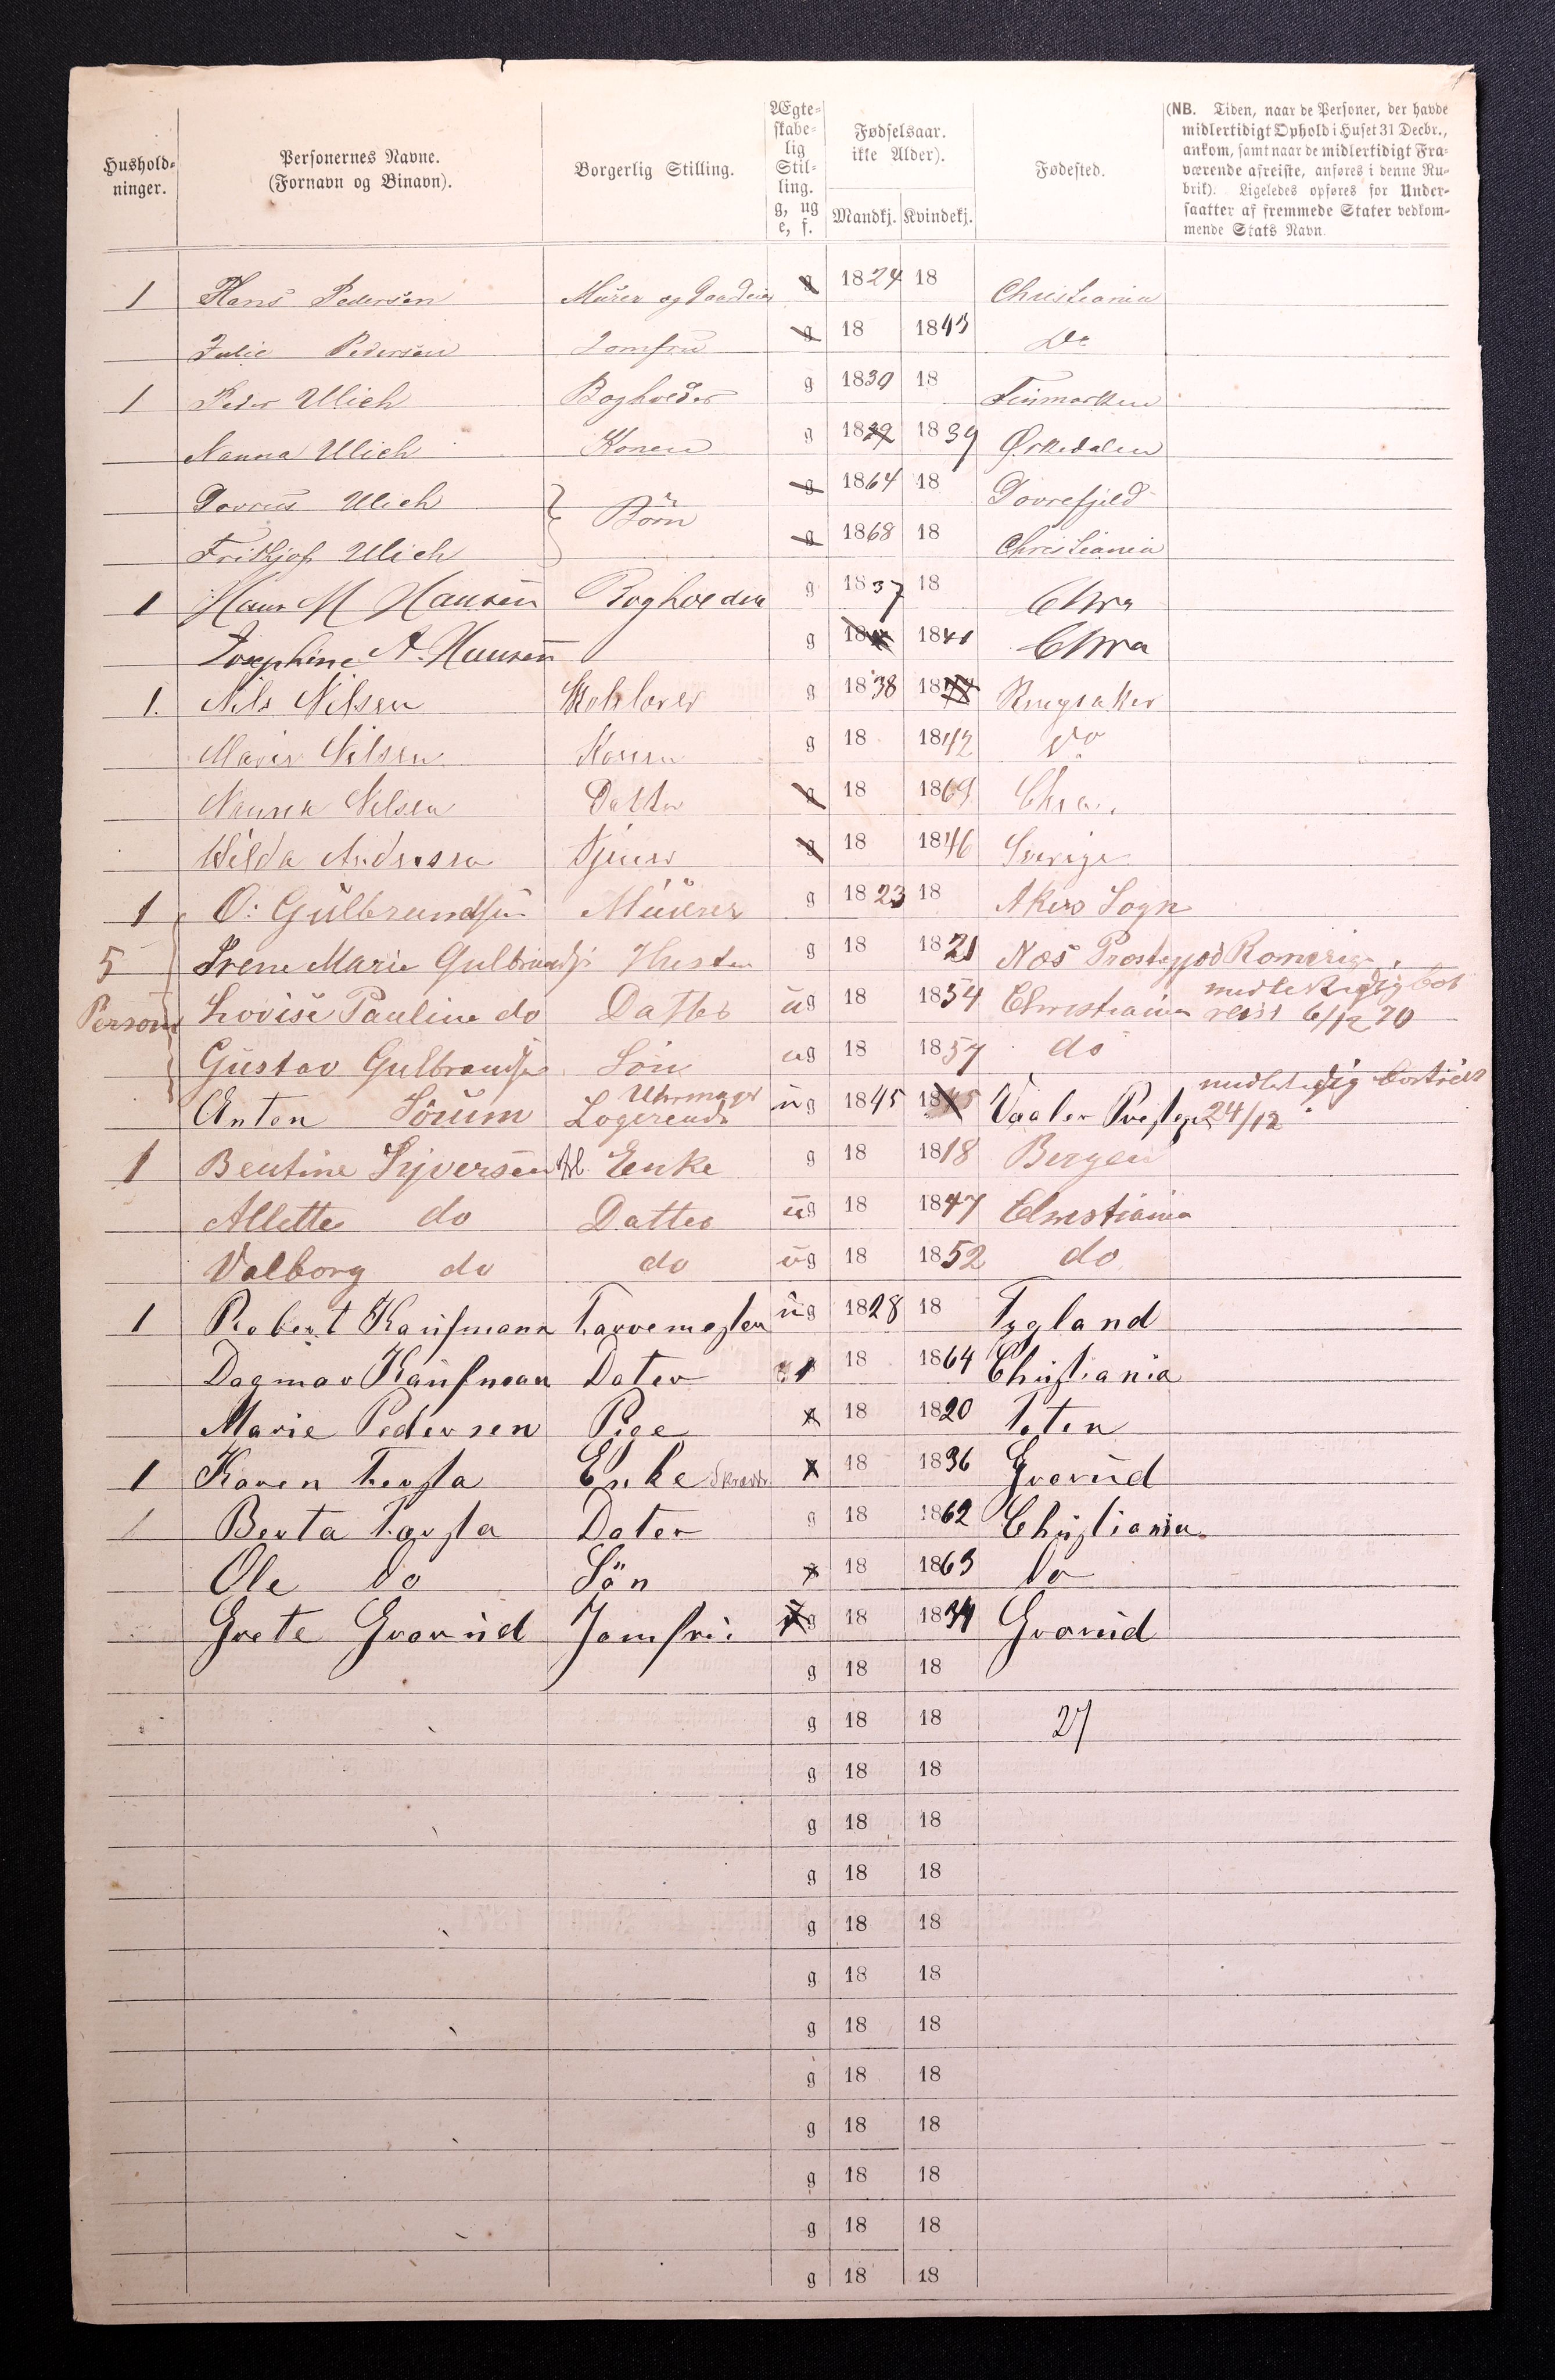 Hushold-
ninger.
Personernes Navne.
(Fornavn og Binavn).
Borgerlig Stilling.
Ægte-
skabe-
lig
Stil-
ling.
g, ug
e, f.
Fødselsaar.
ikke Alder).
Mandkj. Kvindekj.
Fødested.
(NB. Tiden, naar de Personer, der havde
midlertidigt Ophold i Huset 31 Decbr.,
ankom, samt naar de midlertidigt Fra-
værende afreiste, anføres i denne Ru-
brik). Ligeledes opføres for Under-
saatter af fremmede Stater vedkom-
mende Stats Navn.
1 Hans Pedersen Murer og g 1824 18 Christiania
Julie Pedersen Jomfru g 18 1843 Do
1 Peder Ulich Bogholder g 1839 18 Finmarken
Nanna Ulich Konen g 1839 1839 Ørkedalen
Dovrius Ulich Börn g 1864 18 Dovrefjeld
Fridtjof Ulich g 1868 18 Christiania
1 Hans M Hansen Bogholder g 1837 18 Chra
Josephine A. Hansen g 18 1841 Chra
1. Nils Nilsen g 1838 18 Ringsaker
Maria Nilsen Konen g 18 1842 Do
Nanna Nilsen Datter g 18 1869 Chra.
Hilda Andersen g 18 1846 Sverige
1 O: Gulbrandsen Müürer g 1823 18 Akers Sogn
5 Irene Marie Gulbrandsen Hustru g 18 1821 Næs Romerige
Person Lovise Pauline do Datter ug 18 1854 Christiania midlertidig bort
reist 6/12 70
Gustav Gulbrandsen Sön ug 18 1857 do
Anton Sörum Uhrmager
Logerende ug 1845 1845 Vaaler midlertidig bortreist
24/12
1 Bentine Syversen Enke g 18 1818 Bergen
Allette do Datter ug 18 1847 Christiania
Valborg do do ug 18 1852 do
1 Robert Kaufmann Farvemester ug 1828 18 Tyland
Dagmar Kaufman Dater 18 1864 Christiania
Marie Pedersen Pige 18 1820 Toten
1 Karen Enke 18 1836 Grorud
Berta Dater g 18 1862 Christiania
Ole Do Sön 18 1863 Do
Grete Grorud Jomfru ug 18 1834 Grorud
g 18 18
g 18 18 27
g 18 18
g 18 18
g 18 18
g 18 18
g 18 18
g 18 18
g 18 18
g 18 18
g 18 18
g 18 18
g 18 18